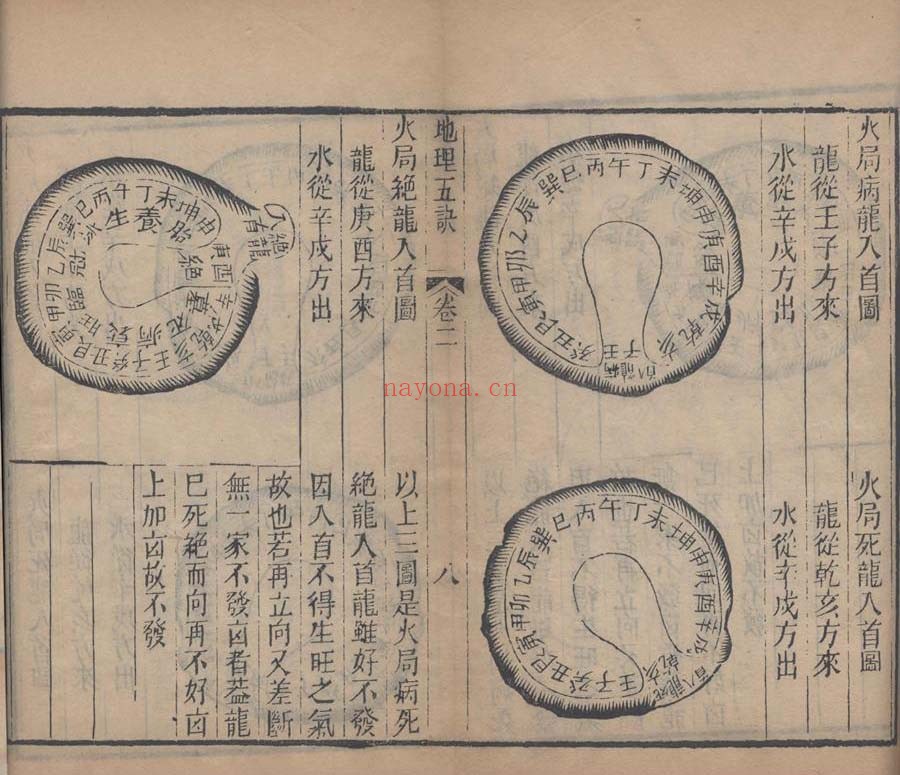 火局病龍入首圖
龍從壬子方來
水從辛戌方出
巽巳丙午丁未坤申庚酉辛戌乾亥
壬子
癸丑艮寅甲卯乙辰
火局死龍入首圖
龍從乾亥方來
水從辛戌方出
巽巳丙午丁未坤申庚酉辛戌
乾亥
壬子癸丑艮寅甲卯乙辰
地理五訣
卷二
八
火局絕龍入首圖
龍從庚酉方來
水從辛戌方出
巽巳丙午丁未坤申
庚酉
辛戌乾亥壬子癸丑艮寅甲卯乙辰
養生
冠臨旺衰病死墓絕
以上三圖是火局病死
絕龍入首龍雖好不發
因入首不得生旺之氣
故也若再立向又差斷
無一家不發凶者葢龍
已死絕而向再不好凶
上加凶故不發
nayona.cn